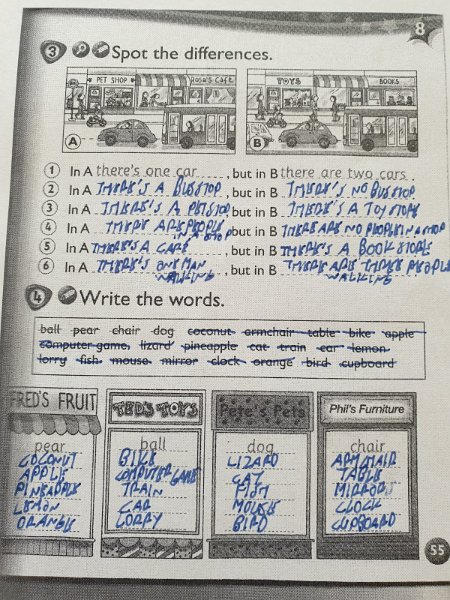 8
3 Spot the differences.
PET SHOP ROSA'S CAFE
TOYS BOOKS
A
B
1 In A there's one car, but in B there are two cars.
2 In A THERE'S A BUS STOP, but in B THERE'S NO BUS STOP
3 In A THERE'S A PET SHOP, but in B THERE'S A TOY STORE
4 In A THERE ARE PEOPLE IN A SHOP, but in B THERE ARE NO PEOPLE IN A SHOP
5 In A THERE'S A CAFE, but in B THERE'S A BOOK STORE
6 In A THERE'S ONE MAN WALKING, but in B THERE ARE THREE PEOPLE WALKING
4 Write the words.
ball pear chair dog coconut armchair table bike apple
computer game, lizard pineapple cat train car lemon
lorry fish mouse mirror clock orange bird cupboard
FRED'S FRUIT
pear
COCONUT
APPLE
PINEAPPLE
LEMON
ORANGE
TED'S TOYS
ball
BIKE
COMPUTER GAME
TRAIN
CAR
LORRY
Pete's Pets
dog
LIZARD
CAT
FISH
MOUSE
BIRD
Phil's Furniture
chair
ARMCHAIR
TABLE
MIRROR
CLOCK
CUPBOARD
55